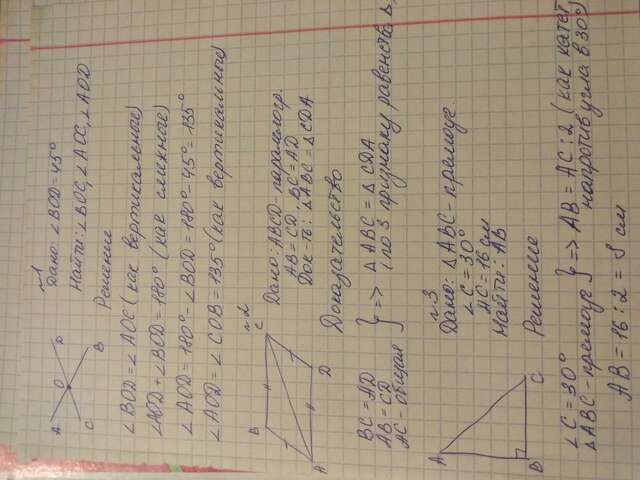 №1
Дано: ∠BOD=45°
Найти: ∠BOC, ∠AOC, ∠AOD
Решение
A D
O
C B
∠BOD=∠AOC (как вертикальные)
∠AOD+∠BOD=180° (как смежные)
∠AOD=180°-∠BOD=180°-45°=135°
∠AOD=∠COB=135° (как вертикальные)
№2
B C
A D
Дано: ABCD-параллогр.
AB=CD, BC=AD
Док-ть: △ABC=△CDA
Доказательство
BC=AD
AB=CD
AC-общая
} => △ABC=△CDA
(по 3 признаку равенств. △
№3
A
B C
Дано: △ABC-прямоуг.
∠C=30°
AC=16см
Найти: AB
Решение
∠C=30°
△ABC-прямоуг } => AB=AC:2 (как катет
напротив угла в 30°)
AB=16:2=8см